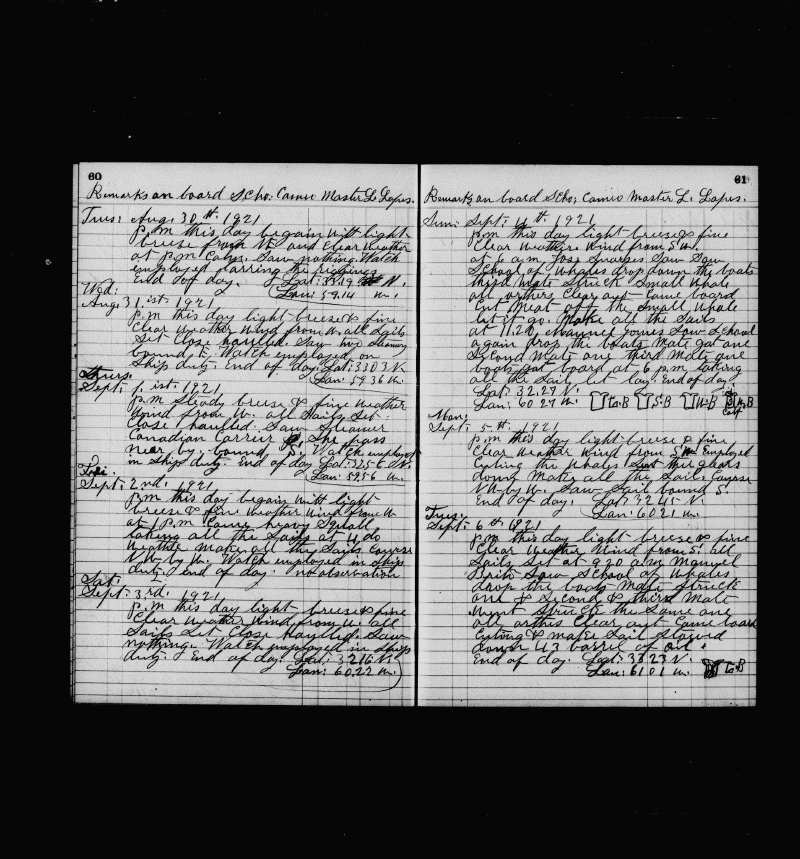 60
Remarks on board Scho; Cameo Master L. Lopes.
Tues: Aug, 30th, 1921
P.m this day begain witt light
breeze from NE and Clear weather
at P.m Calm. Saw nothing. Watch
employed tarring the riggings
End of day. Lat: 33.19 N.
Lon: 59.14 W.
Wed:
Aug. 31.ist, 1921
P.m this day light breeze & fine
Clear weather Wind from W. all Sails
Set Close haulled. Saw two Steamer
bound E. Watch employed on
Ship duty. End of day. Lat: 33.03 N
Lon: 59.36 W.
Thurs:
Sept, 1.ist, 1921
P.m Steady breeze & fine weather
Wind from W. all Sails Set
Close haulled. Saw Steamer
Canadian Carrier She pass
near by. bound S. Watch employed
in Ships duty. End of day Lat: 32.56 N.
Lon: 59.56 W.
Fri:
Sept: 2nd, 1921
P.m this day begain witt light
breeze & fine weather Wind from W
at 1 P.m Came heavy Squall
taking all the Sails at 4 do
weather make all the Sails Course
N.W. by W. Watch employed in Ships
duty. End of day. no observation
Sat:
Sept: 3rd, 1921
P.m this day light breeze & fine
Clear weather Wind from W. all
Sails Set Close haulled. Saw
nothing. Watch employed in Ships
duty. End of day. Lat: 32.16 N.
Lon: 60.22 W.
61
Remarks on board Scho; Cameo Master L. Lopes.
Sun: Sept: 4th, 1921
P.m this day light breeze & fine
Clear weather. Wind from S.W.
at 6 a.m. Jose Saw
School of Whales drop down the boats
third mate Struck Small Whale
all orthers Clear out Came board
Cut Meat off the Small Whale
let it go. Make all the Sails
at 11.20. Mannel Gomes Saw School
again drop the boats Mate got one
Second Mate one third Mate one
boats got board at 6 P.m taking
all the Sail let lay. End of day.
Lat: 32.27 N.
Lon: 60.27 W. La.B S.B W.B W.B
Calf
Mon:
Sept: 5th, 1921
P.m this day light breeze & fine
Clear weather Wind from S.W Employed
Cuting the Whales the gears
down Make all the Sails Course
N.W. by W. Saw Sail bound S.
End of day. Lat: 32.45 N.
Lon: 60.21 W.
Tues:
Sept: 6th 1921
P.m this day light breeze & fine
Clear weather Wind from S. all
Sails Set at 9.20 a.m Manuel
Brito Saw School of Whales
drop the boats Mate Struck
one & Second & third Mate
Went Struck the Same one
all orthes Clear out Came board
Cuting & make Sail Stowed
down 43 barrel of oil.
End of day. Lat: 33.23 N.
Lon: 61.01 W. La.B